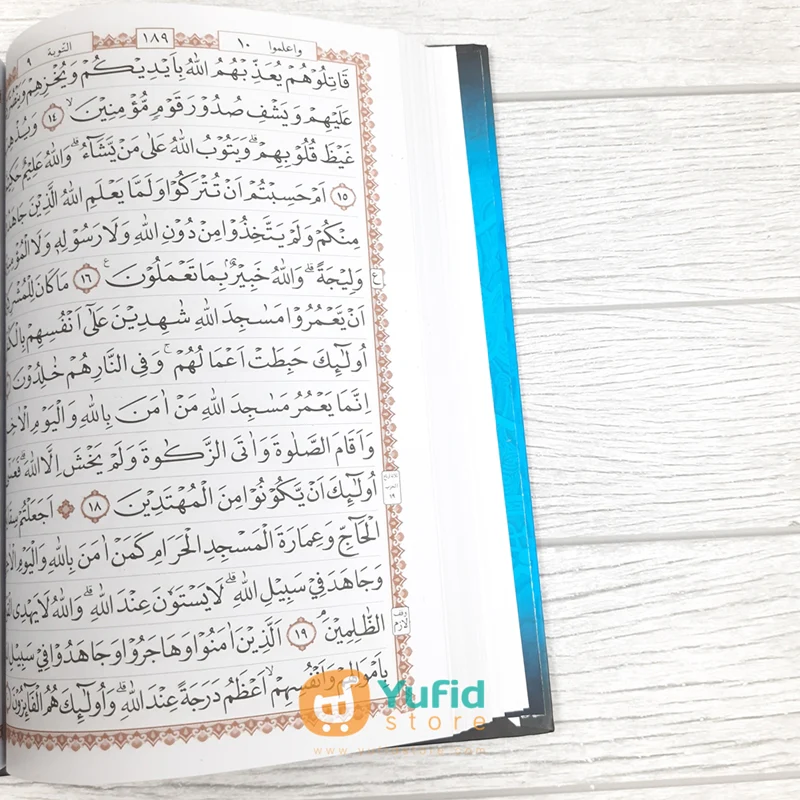 واعلموا ١٠
١٨٩
التوبة ٩
قَاتِلُوْهُمْ يُعَذِّبْهُمُ اللّٰهُ بِاَيْدِيْكُمْ وَيُخْزِهِمْ
عَلَيْهِمْ وَيَشْفِ صُدُوْرَ قَوْمٍ مُّؤْمِنِيْنَۙ ١٤
غَيْظَ قُلُوْبِهِمْۗ وَيَتُوْبُ اللّٰهُ عَلٰى مَنْ يَّشَاۤءُۗ وَاللّٰهُ عَلِيْمٌ
١٥ اَمْ حَسِبْتُمْ اَنْ تُتْرَكُوْا وَلَمَّا يَعْلَمِ اللّٰهُ الَّذِيْنَ
مِنْكُمْ وَلَمْ يَتَّخِذُوْا مِنْ دُوْنِ اللّٰهِ وَلَا رَسُوْلِهٖ وَلَا
وَلِيْجَةًۗ وَاللّٰهُ خَبِيْرٌۢ بِمَا تَعْمَلُوْنَ ࣖ ١٦ مَا كَانَ
ع
اَنْ يَّعْمُرُوْا مَسٰجِدَ اللّٰهِ شٰهِدِيْنَ عَلٰٓى اَنْفُسِهِمْ
اُولٰۤىِٕكَ حَبِطَتْ اَعْمَالُهُمْۚ وَفِى النَّارِ هُمْ خٰلِدُوْنَ
اِنَّمَا يَعْمُرُ مَسٰجِدَ اللّٰهِ مَنْ اٰمَنَ بِاللّٰهِ وَالْيَوْمِ
وَاَقَامَ الصَّلٰوةَ وَاٰتَى الزَّكٰوةَ وَلَمْ يَخْشَ اِلَّا اللّٰهَ
اُولٰۤىِٕكَ اَنْ يَّكُوْنُوْا مِنَ الْمُهْتَدِيْنَ ١٨ ۞ اَجَعَلْتُمْ
الْحَاۤجِّ وَعِمَارَةَ الْمَسْجِدِ الْحَرَامِ كَمَنْ اٰمَنَ بِاللّٰهِ وَالْيَوْمِ
وَجَاهَدَ فِيْ سَبِيْلِ اللّٰهِۗ لَا يَسْتَوٗنَ عِنْدَ اللّٰهِۗ وَاللّٰهُ لَا يَهْدِى
الظّٰلِمِيْنَۘ ١٩ اَلَّذِيْنَ اٰمَنُوْا وَهَاجَرُوْا وَجَاهَدُوْا فِيْ سَبِيْلِ
وقف لازم
بِاَمْوَالِهِمْ وَاَنْفُسِهِمْۙ اَعْظَمُ دَرَجَةً عِنْدَ اللّٰهِۗ وَاُولٰۤىِٕكَ هُمُ الْفَاۤىِٕزُوْنَ
Yufid
store